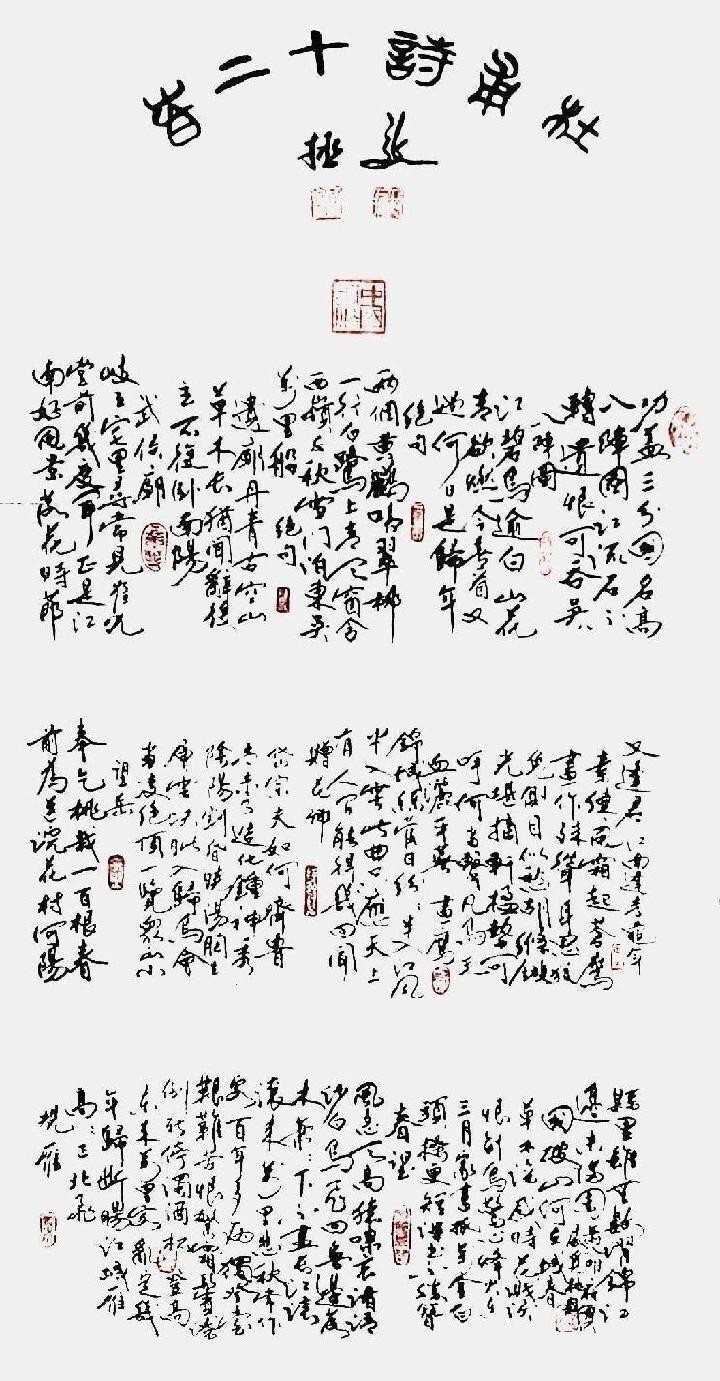 杜甫詩十二首
功蓋三分國名高
八陣圖江流石不
轉遺恨吞吳
八陣圖
江碧鳥逾白山花
青欲燃今春看又
過何日是歸年
絕句
兩個黃鸝鳴翠柳
一行白鷺上青天窗含
西嶺千秋雪門泊東吳
萬里船 絕句
遺廟丹青古空山
草木長猶聞辭後
主不復臥南陽
武侯廟
岐王宅里尋常見崔九
堂前幾度聞正是江
南好風景落花時節
又逢君 江南逢李龜年
素練風霜起蒼鷹
畫作殊身思狡
兔側目似愁胡絛鏇
光堪摘軒楹勢可
呼何當擊凡鳥毛
血灑平蕪 畫鷹
錦城絲管日紛紛半入江風
半入雲此曲只應天上
有人間能得幾回聞
贈花卿
岱宗夫如何齊魯
青未了造化鍾神秀
陰陽割昏曉蕩胸生
層雲決眥入歸鳥會
當凌絕頂一覽眾山小
望岳
奉乞桃栽一百根春
前為送浣花村河陽
縣里雖無數濯錦江
邊未滿園
國破山河在城春
草木深感時花濺淚
恨別鳥驚心烽火連
三月家書抵萬金白
頭搔更短渾欲不勝簪
春望
風急天高猿嘯哀渚清
沙白鳥飛回無邊落
木蕭蕭下不盡長江滾
滾來萬里悲秋常作
客百年多病獨登臺
艱難苦恨繁霜鬢潦
倒新停濁酒杯 登高
東來萬里客亂定幾
年歸腸斷江城雁
高高正北飛
雁